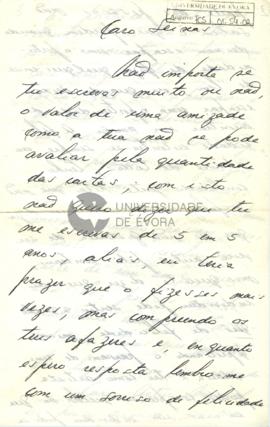 UNIVERSIDADE DE ÉVORA
Caro Seixas
Não importa se
tu escrevas muito ou não,
o valor de uma amizade
como a tua não se pode
avaliar pela quantidade
das cartas, com isto
não quero dizer que tu
me escrevas de 5 em 5
anos, aliás, eu teria
prazer que o fizesses mais
vezes, mas compreendo os
teus afazeres e, enquanto
espero resposta lembro-me
com um sorriso de felicidade
UNIVERSIDADE
DE ÉVORA